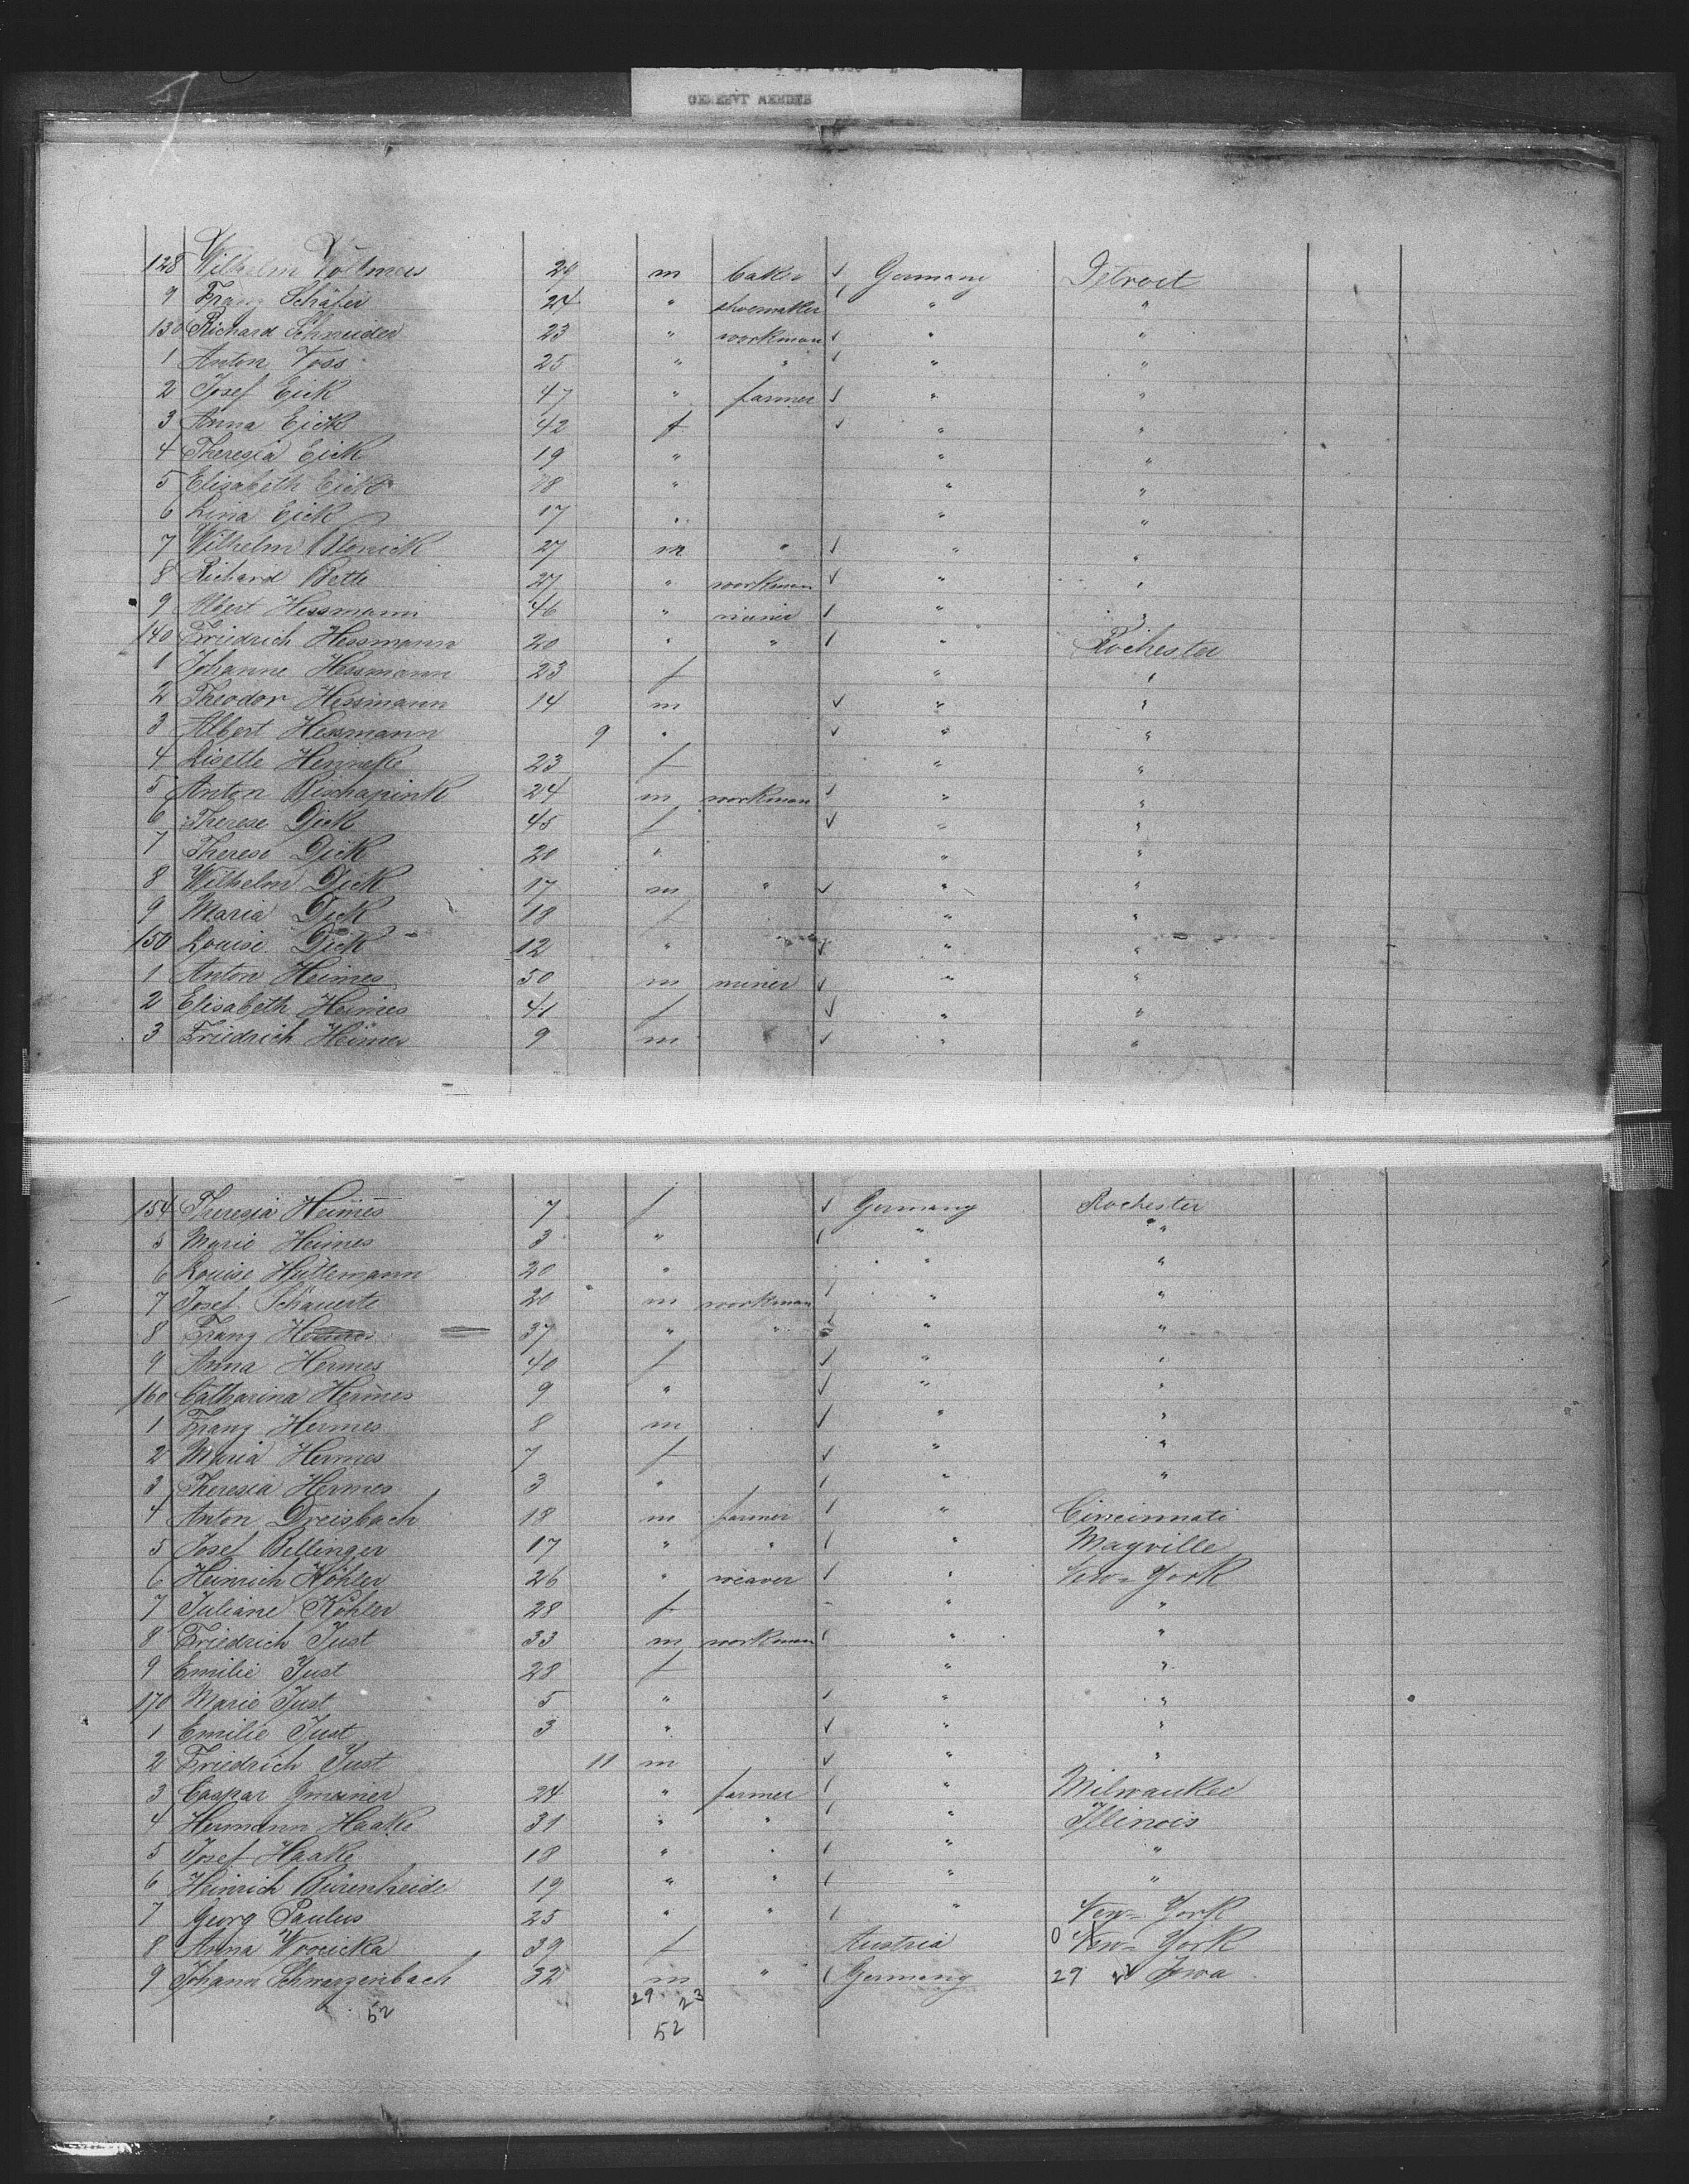 128 Wilhelm Vollmers 29 m baker Germany Detroit
9 Franz Schäfer 24 " shoemaker " "
130 Richard Schneider 23 " workman " "
1 Anton Voss 25 " " " "
2 Josef Eick 47 " farmer " "
3 Anna Eick 42 f " "
4 Theresia Eick 19 " " "
5 Elisabeth Eick 18 " " "
6 Lina Eick 17 " " "
7 Wilhelm 27 m " " "
8 Richard Bette 27 " workman " "
9 Albert Hessmann 46 " miner " "
140 Friedrich Hessmann 20 " " " Rochester
1 Johanne Hessmann 23 f " "
2 Theodor Hessmann 14 m " "
3 Albert Hessmann 9 " " "
4 Lisette Henneke 23 f " "
5 Anton Bischapink 24 m workman " "
6 Therese Dick 45 f " "
7 Therese Dick 20 " " "
8 Wilhelm Dick 17 m " " "
9 Maria Dick 18 f " "
150 Louise Dick 12 " " "
1 Anton Heimes 50 m miner " "
2 Elisabeth Heimes 41 f " "
3 Friedrich Heimes 9 m " " "
154 Theresia Heimes 7 f Germany Rochester
5 Marie Heimes 3 " " "
6 Louise Hüttemann 20 " " "
7 Josef Schauerte 20 m workman " "
8 Franz 37 " " " "
9 Anna Hermes 40 f " "
160 Catharina Hermes 9 " " "
1 Franz Hermes 8 m " "
2 Maria Hermes 7 f " "
3 Theresia Hermes 3 " " "
4 Anton Dreisbach 18 m farmer " Cincinnati
5 Josef Bellinger 17 " " " Mayville
6 Heinrich Köhler 26 " weaver " New-York
7 Juliane Köhler 28 f " "
8 Friedrich Just 33 m workman " "
9 Emilie Just 28 f " "
170 Marie Just 5 " " "
1 Emilie Just 3 " " "
2 Friedrich Just 11 m " "
3 Caspar Gmeiner 24 " farmer " Milwaukee
4 Hermann Haake 31 " " " Illinois
5 Josef Haake 18 " " " "
6 Heinrich Bürenheide 19 " " " "
7 Georg Paulus 25 " " " New-York
8 Anna 39 f Austria 0 New-York
9 Johann Schwarzenbach 32 m " Germany 29 Iowa
52 29 23
52